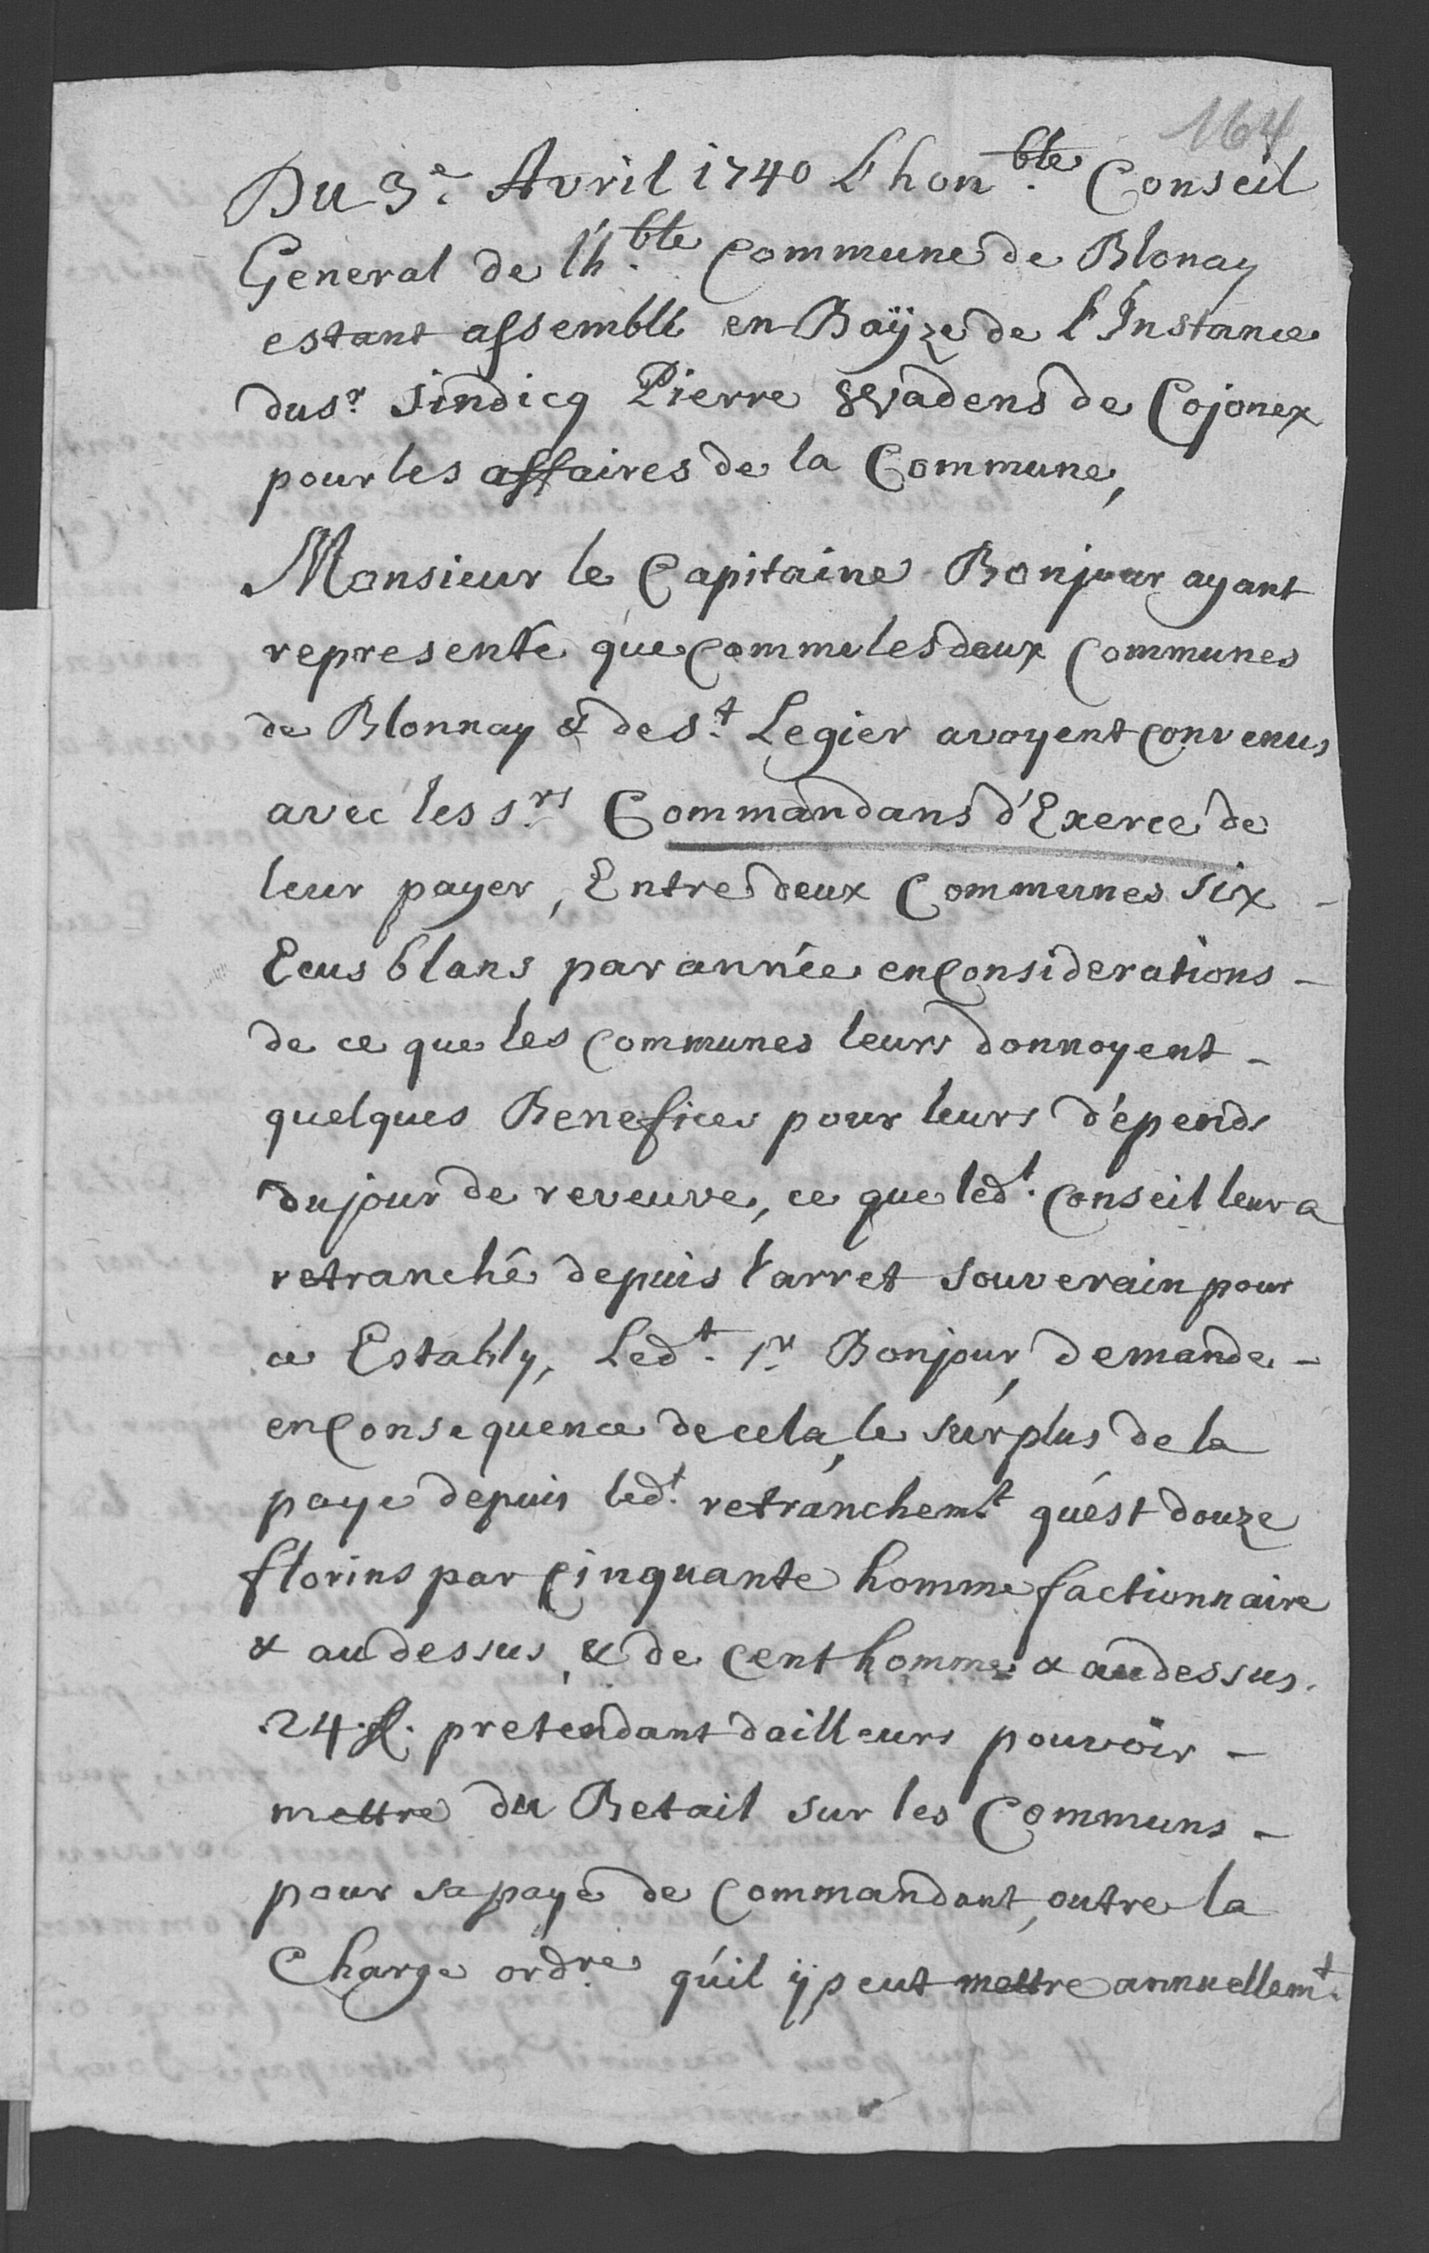 164
Du 3e. Avril 1740 L'hon.ble Conseil
General de l'h.ble Commune de Blonay
estant assemblé en Baÿze de l'Instance
du sr. sindicq Pierre Wadens de Cojonex
pour les affaires de la Commune,
Monsieur le Capitaine Bonjour ayant
representé que comme les deux Communes
de Blonnay & de St. Legier avoyent convenus
avec les Srs. Commandans d'Exerce de
leur payer, Entre deux Communes six -
Ecus blans par année en considerations -
de ce que les Communes leurs donnoyent -
quelques Benefices pour leurs d'épends
du jour de reveuve, ce que ledt. Conseil leur a
retranché depuis l'arret souverain pour
ce Establÿ, Ledt. sr. Bonjour demande -
en Consequence de cela, le surplus de la
paye depuis ledt. retranchemt. qu'est douze
florins par Cinquante homme factionnaire
& au dessus, & de Cent homme & au dessus.
24 fl. pretendant dailleurs pouvoir -
mettre du Betail sur les Communs -
pour sa paye de Commandant, outre la
Charge ord.re qu'il ÿ peut mettre annuellemt.